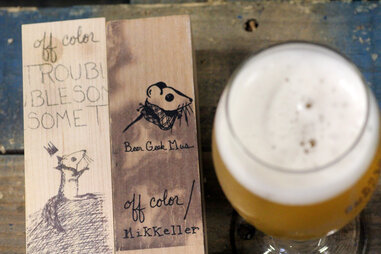 off color
TROUBL
BLESOM
SOME T
Beer Geek Mus
off color /
MiKKeller